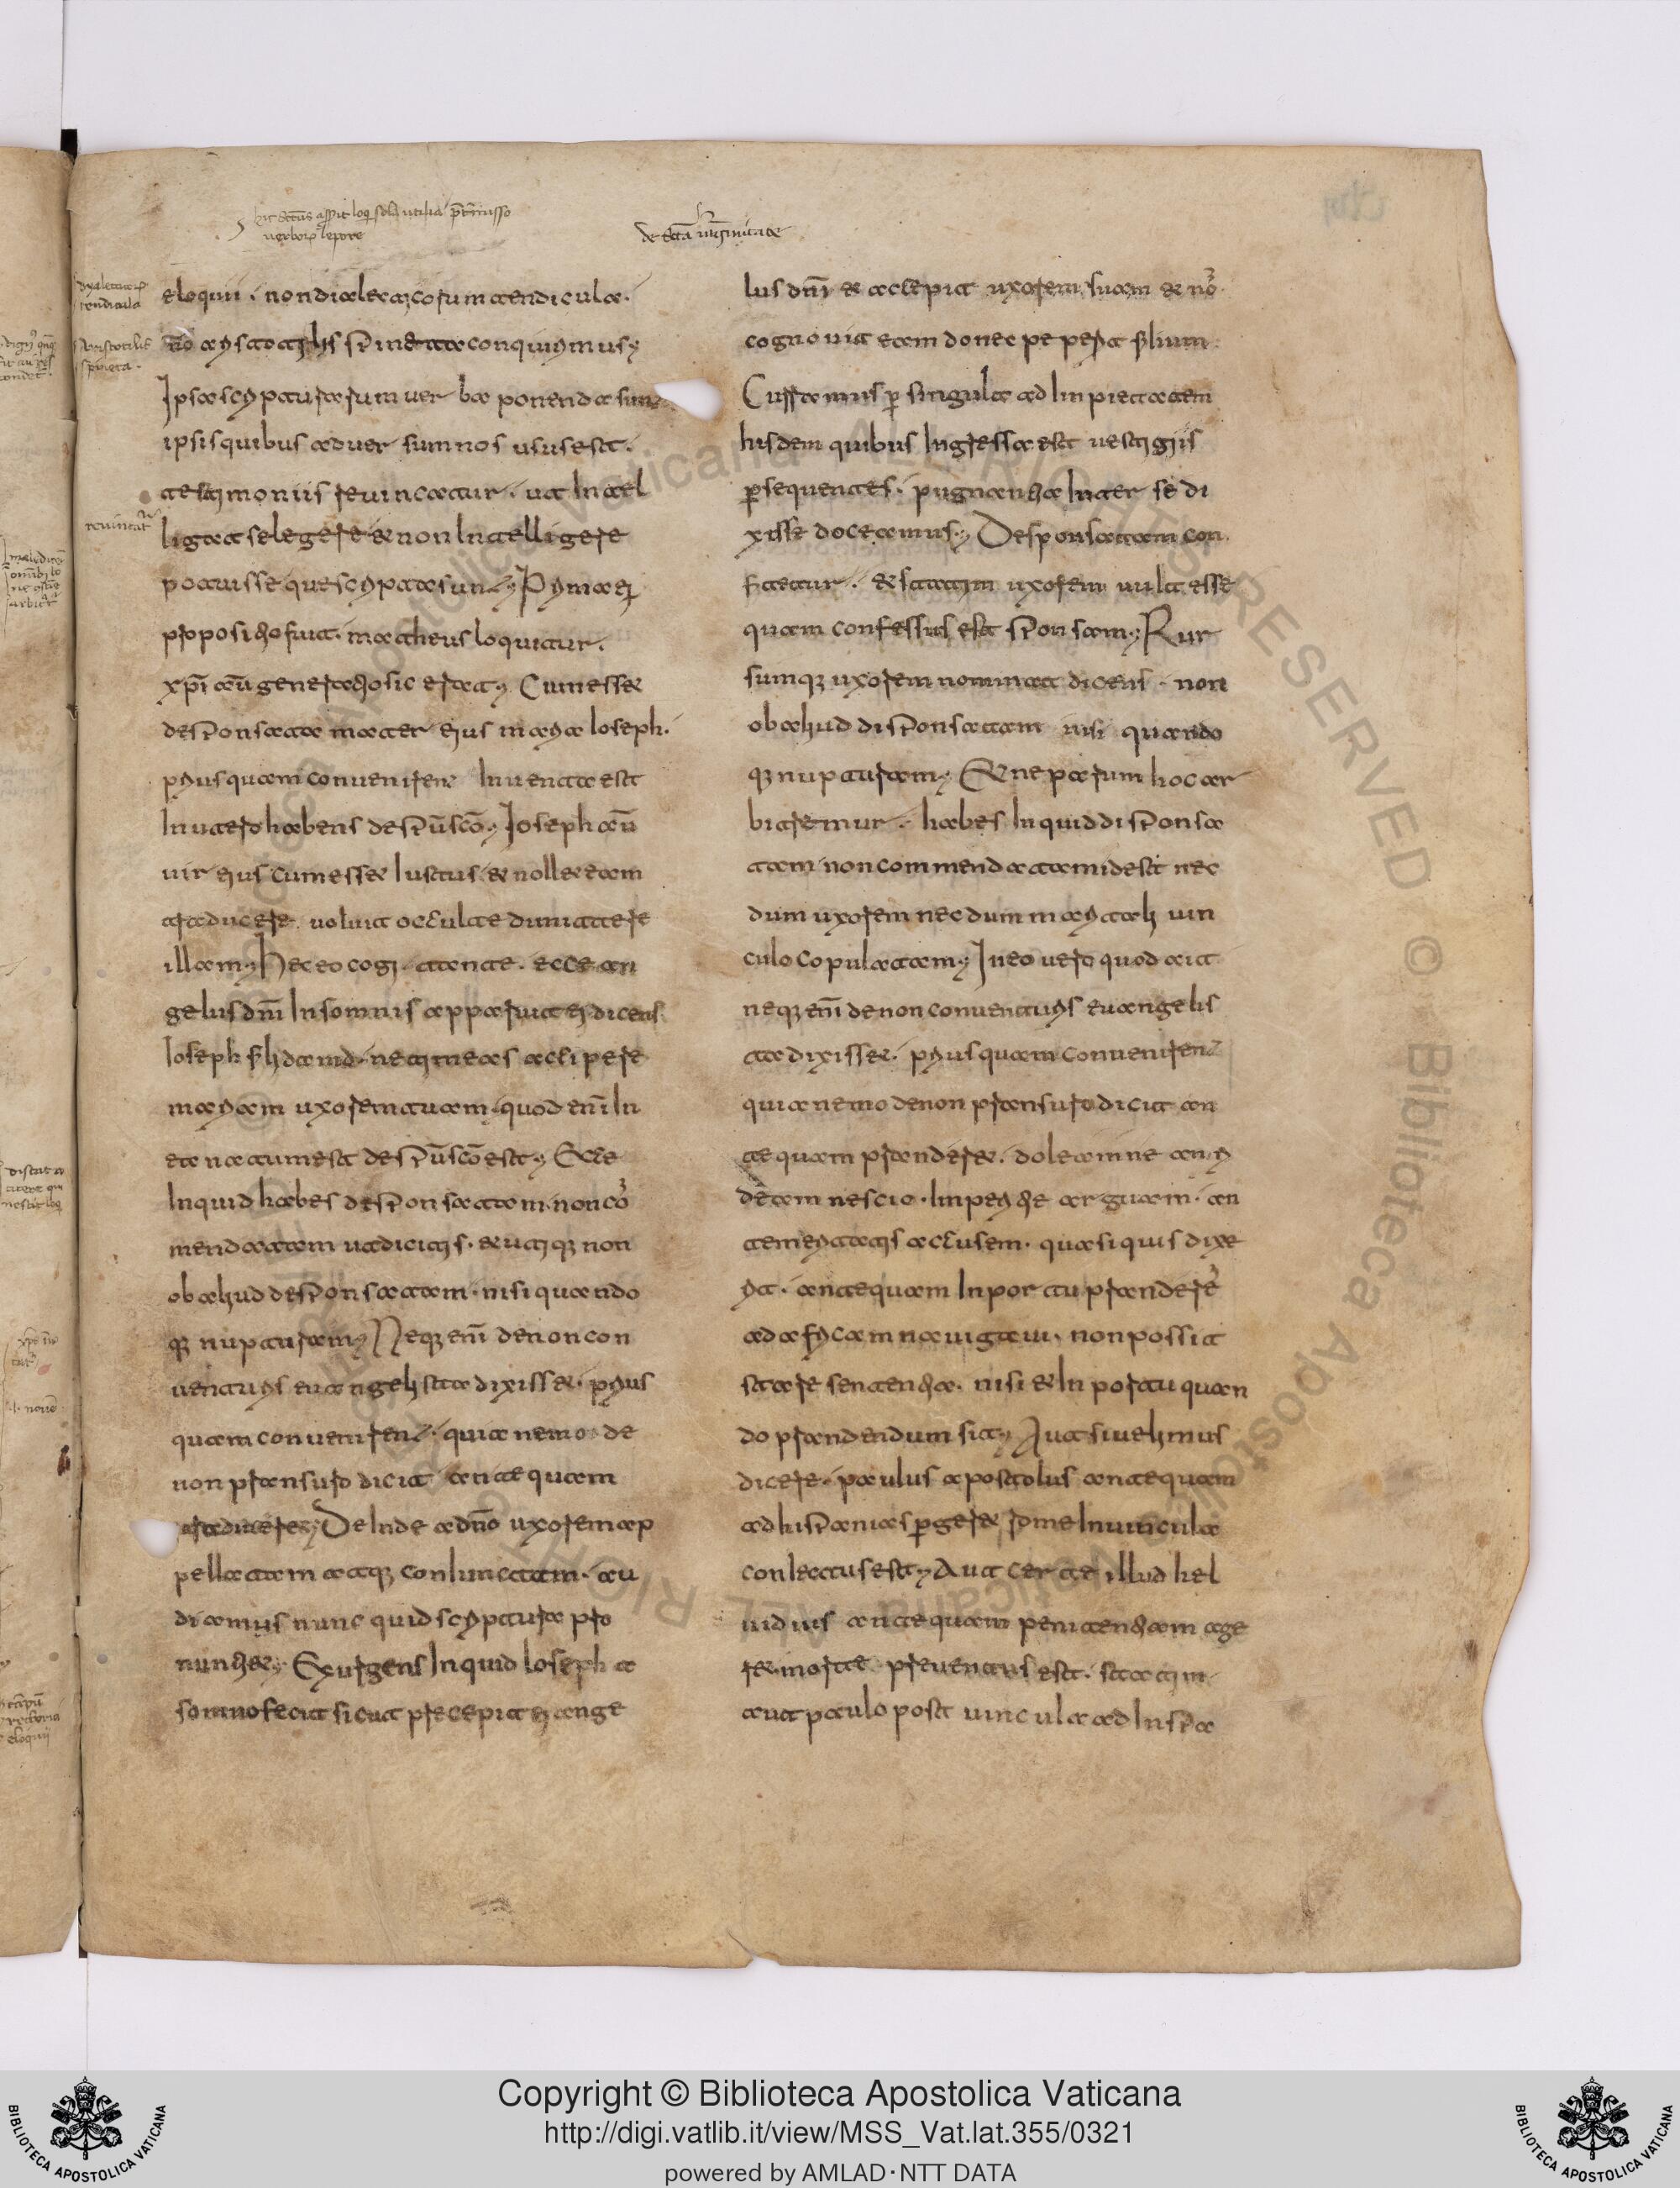 de sc̄a uirginitate
eloquii. non dialecticorum tendicula.
nō aristotilis spineta conquirimus;
Ipsa scripturarum uerba ponenda sunt
ipsis quibus aduersum nos usus est.
testimoniis reuincatur. ut intel
ligat se legere & non intelligere
potuisse que scripta sunt; Prima ei
proposicio fuit. matheus loquitur.
xp̄i aūt generatio sic erat; Cum ess&
desponsata mater eius maria ioseph.
priusquam conuenirent inuenta est
in utero habens de sp̄u sc̄o; Ioseph aūt
uir eius cum ess& iustus & noll& eam
traducere uoluit occulte dimittere
illam; Hec eo cogitante. ecce an
gelus dn̄i in somnis apparuit ei dicens
ioseph fili dauid. ne timeas accipere
mariam uxorem tuam. quod enī in
ea natum est de sp̄u sc̄o est; Ecce
inquid habes desponsatam. non cō
mendatam ut dicitis. & utiq; non
ob aliud desponsatam. nisi quando
q; nupturam; Neq; enī de non con
uenturis euangelista dixiss&. prius
quam conuenirent. quia nemo de
non pransuro dicit antequam
traducere; Deinde a dn̄o uxorem ap
pellatam atq; coniunctam. au
diamus nunc quid scriptura pro
nunti&; Exurgens inquid ioseph a
somno fecit sicut precepit ei ange
lus dn̄i & accepit uxorem suam & nō
cognouit eam donec peperit filium
Curramus per singula ad impietatem
hisdem quibus ingressa est uestigiis
persequentes. pugnantia inter se di
xisse doceamus; Desponsatam con
fitetur. & statim uxorem uult esse
quam confessus est sponsam; Rur
sumq; uxorem nominat dicens. non
ob aliud disponsatam nisi quando
q; nupturam; Et ne parum hoc ar
bitremur. habes inquid disponsa
tam non commendatam id est nec
dum uxorem necdum maritali uin
culo copulatam; In eo uero quod ait
neq; enī de non conuenturis euangelis
ta dixiss&. priusquam conuenirent
quia nemo de non pransuro dicit an
te quam prander&. doleam ne an ri
deam nescio. inperitie arguam. an
temeritatis accusem. quasi quis dixe
rit. antequam in portu pranderē
ad africam nauigaui. non possit
stare sententia. nisi & in portu quan
do prandendum sit; Aut si uelimus
dicere. paulus apostolus antequam
ad hispanias perger& rome in uincula
coniectus est; Aut certe illud hel
uidius antequam penitentiam age
r& morte preuentus est. statim
aut paulo post uincula ad hispa
Copyright © Biblioteca Apostolica Vaticana
http://digi.vatlib.it/view/MSS_Vat.lat.355/0321
powered by AMLAD·NTT DATA
BIBLIOTECA APOSTOLICA VATICANA
BIBLIOTECA APOSTOLICA VATICANA